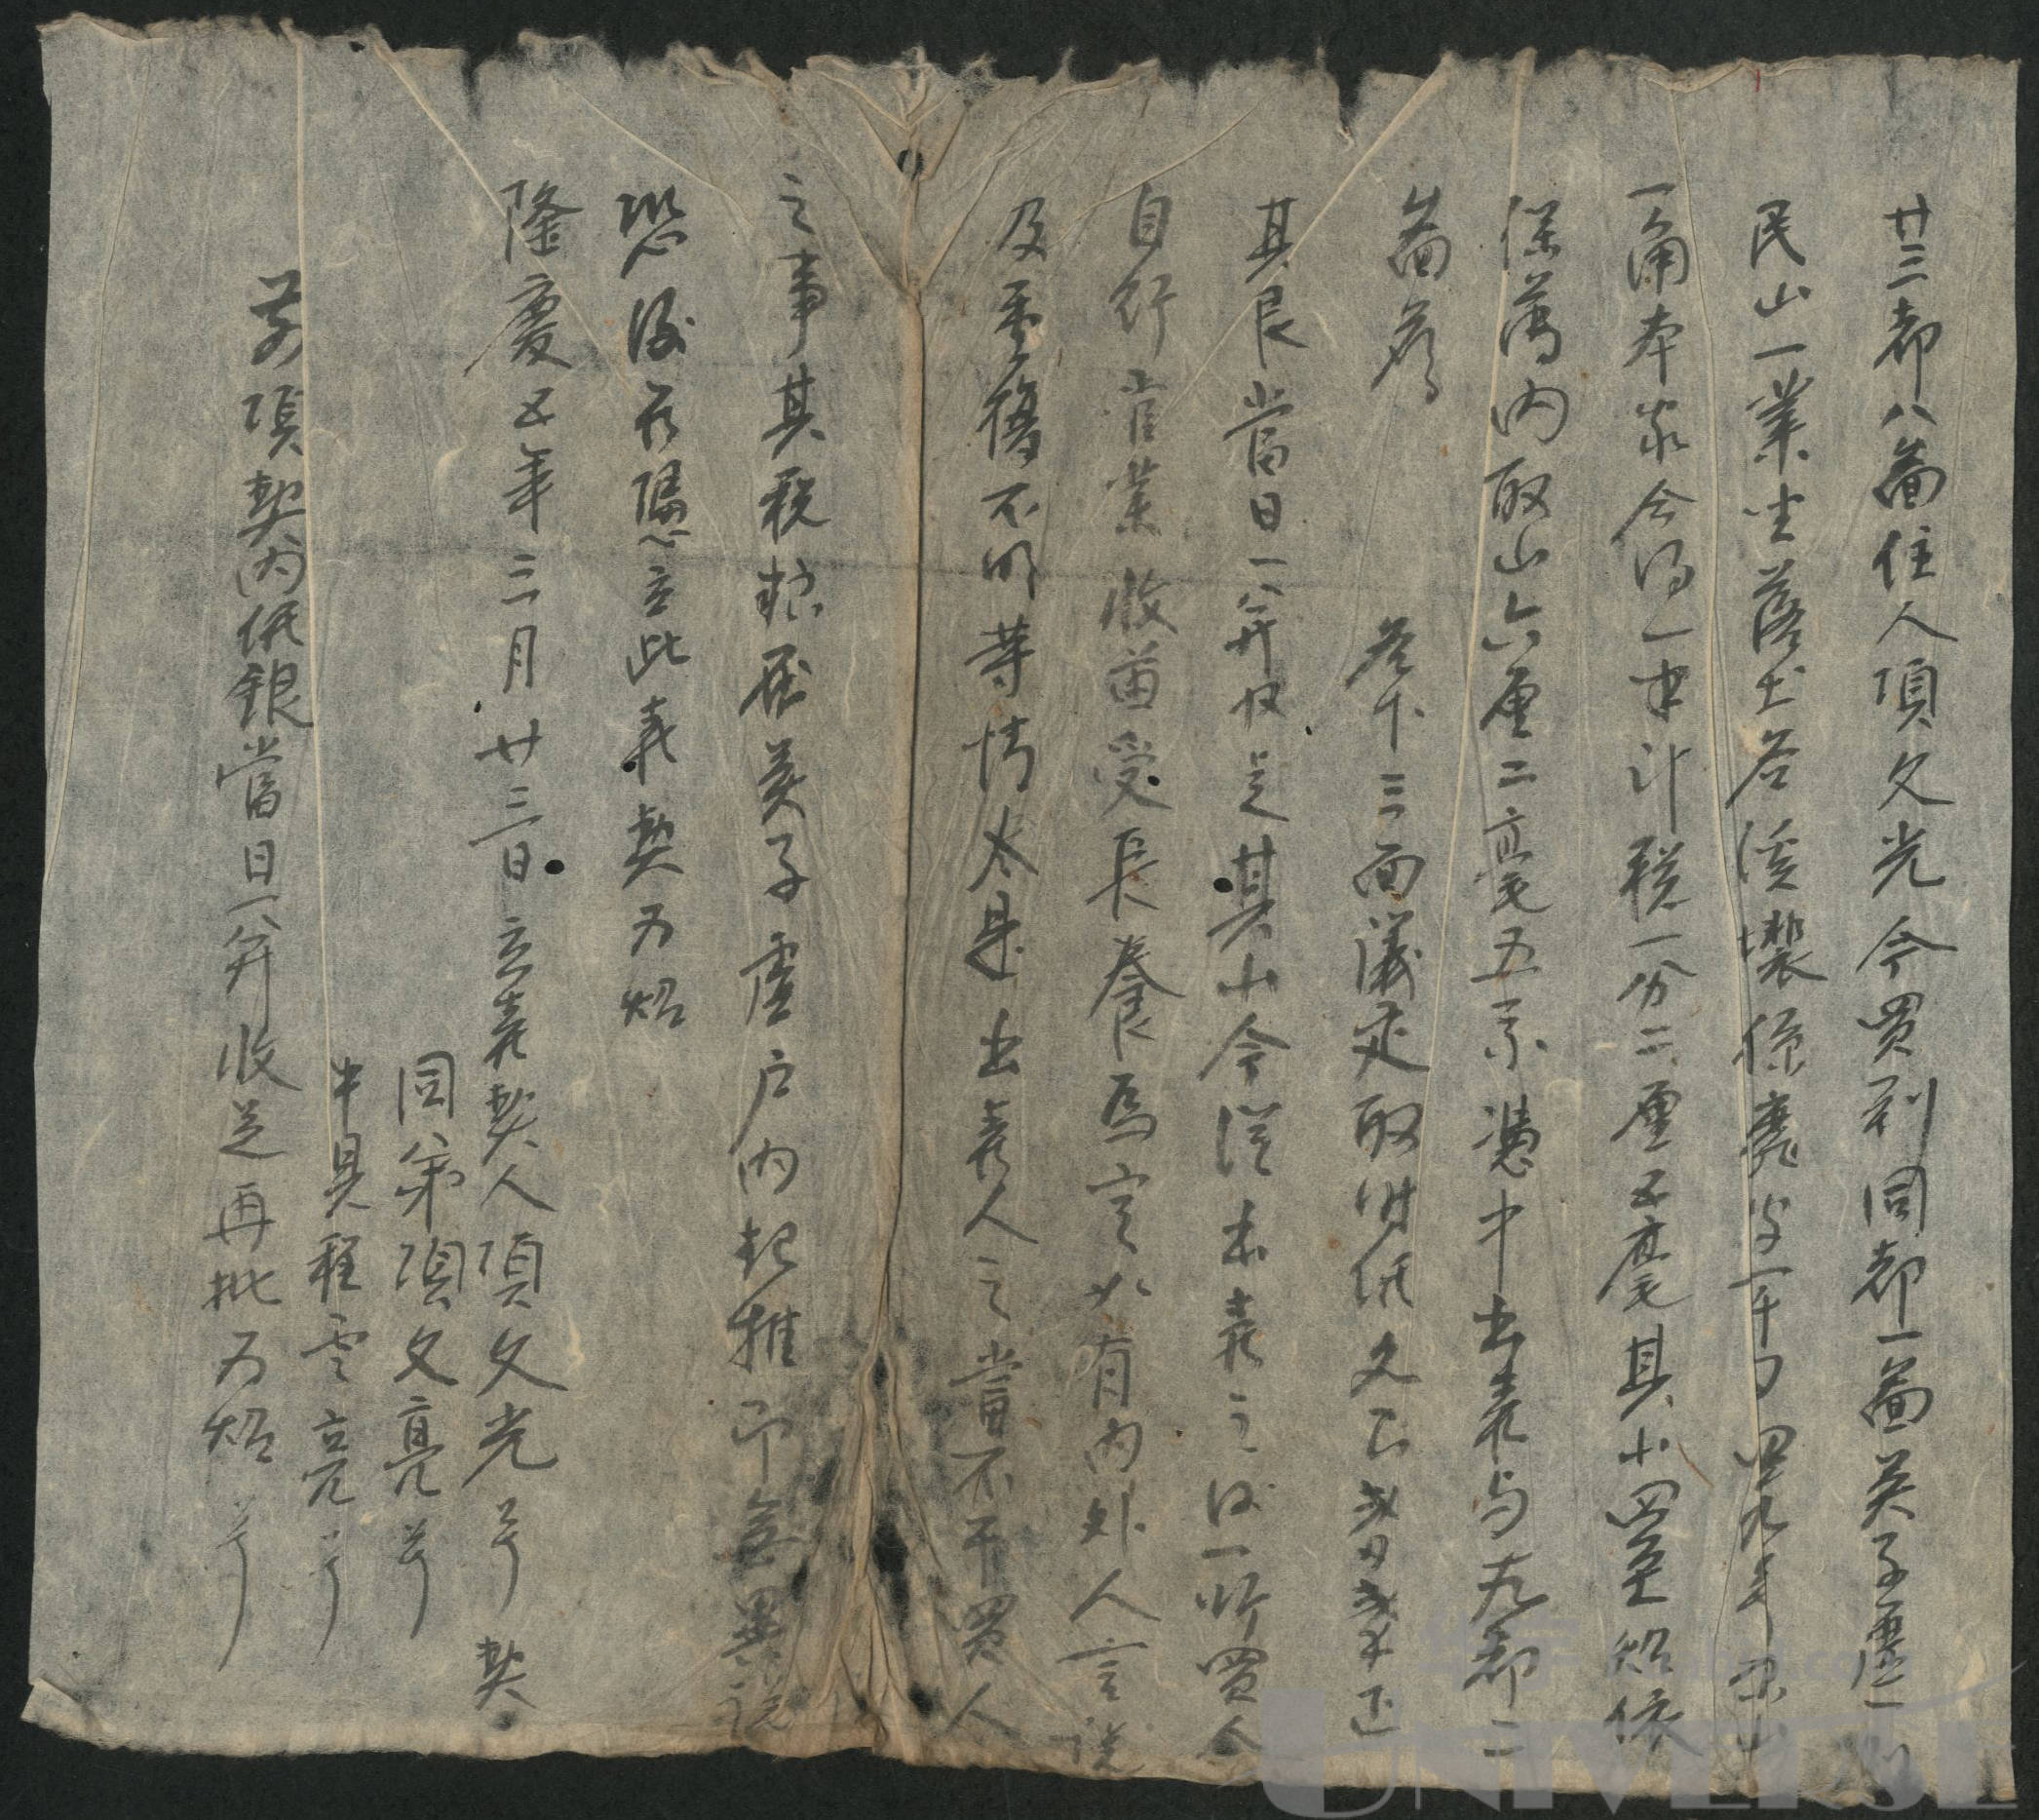 廿三都八啚住人項文光今買到同都一啚吳子虛
民山一業坐落土名溪塝係
一角本家合得一半計税一分二厘五毫其山四至照依
保簿内取山六厘二毫五系憑中出賣与九都二
啚
名下三面議定取时價文
其艮當日一并收足其山今從出賣之後一听買人
自行管業收苗受長養為定如有内外人言说
及重復不明等情尽是出賣人之當不干買人
之事其税粮在吳子虛户内起推即無異説
恐後无憑立此賣契为炤
隆慶五年三月廿三日立賣契人項文光号 契
同弟項文亮号
中見程雲亮号
前項契内価銀當日一并收足再批为炤号
UNIVERSE